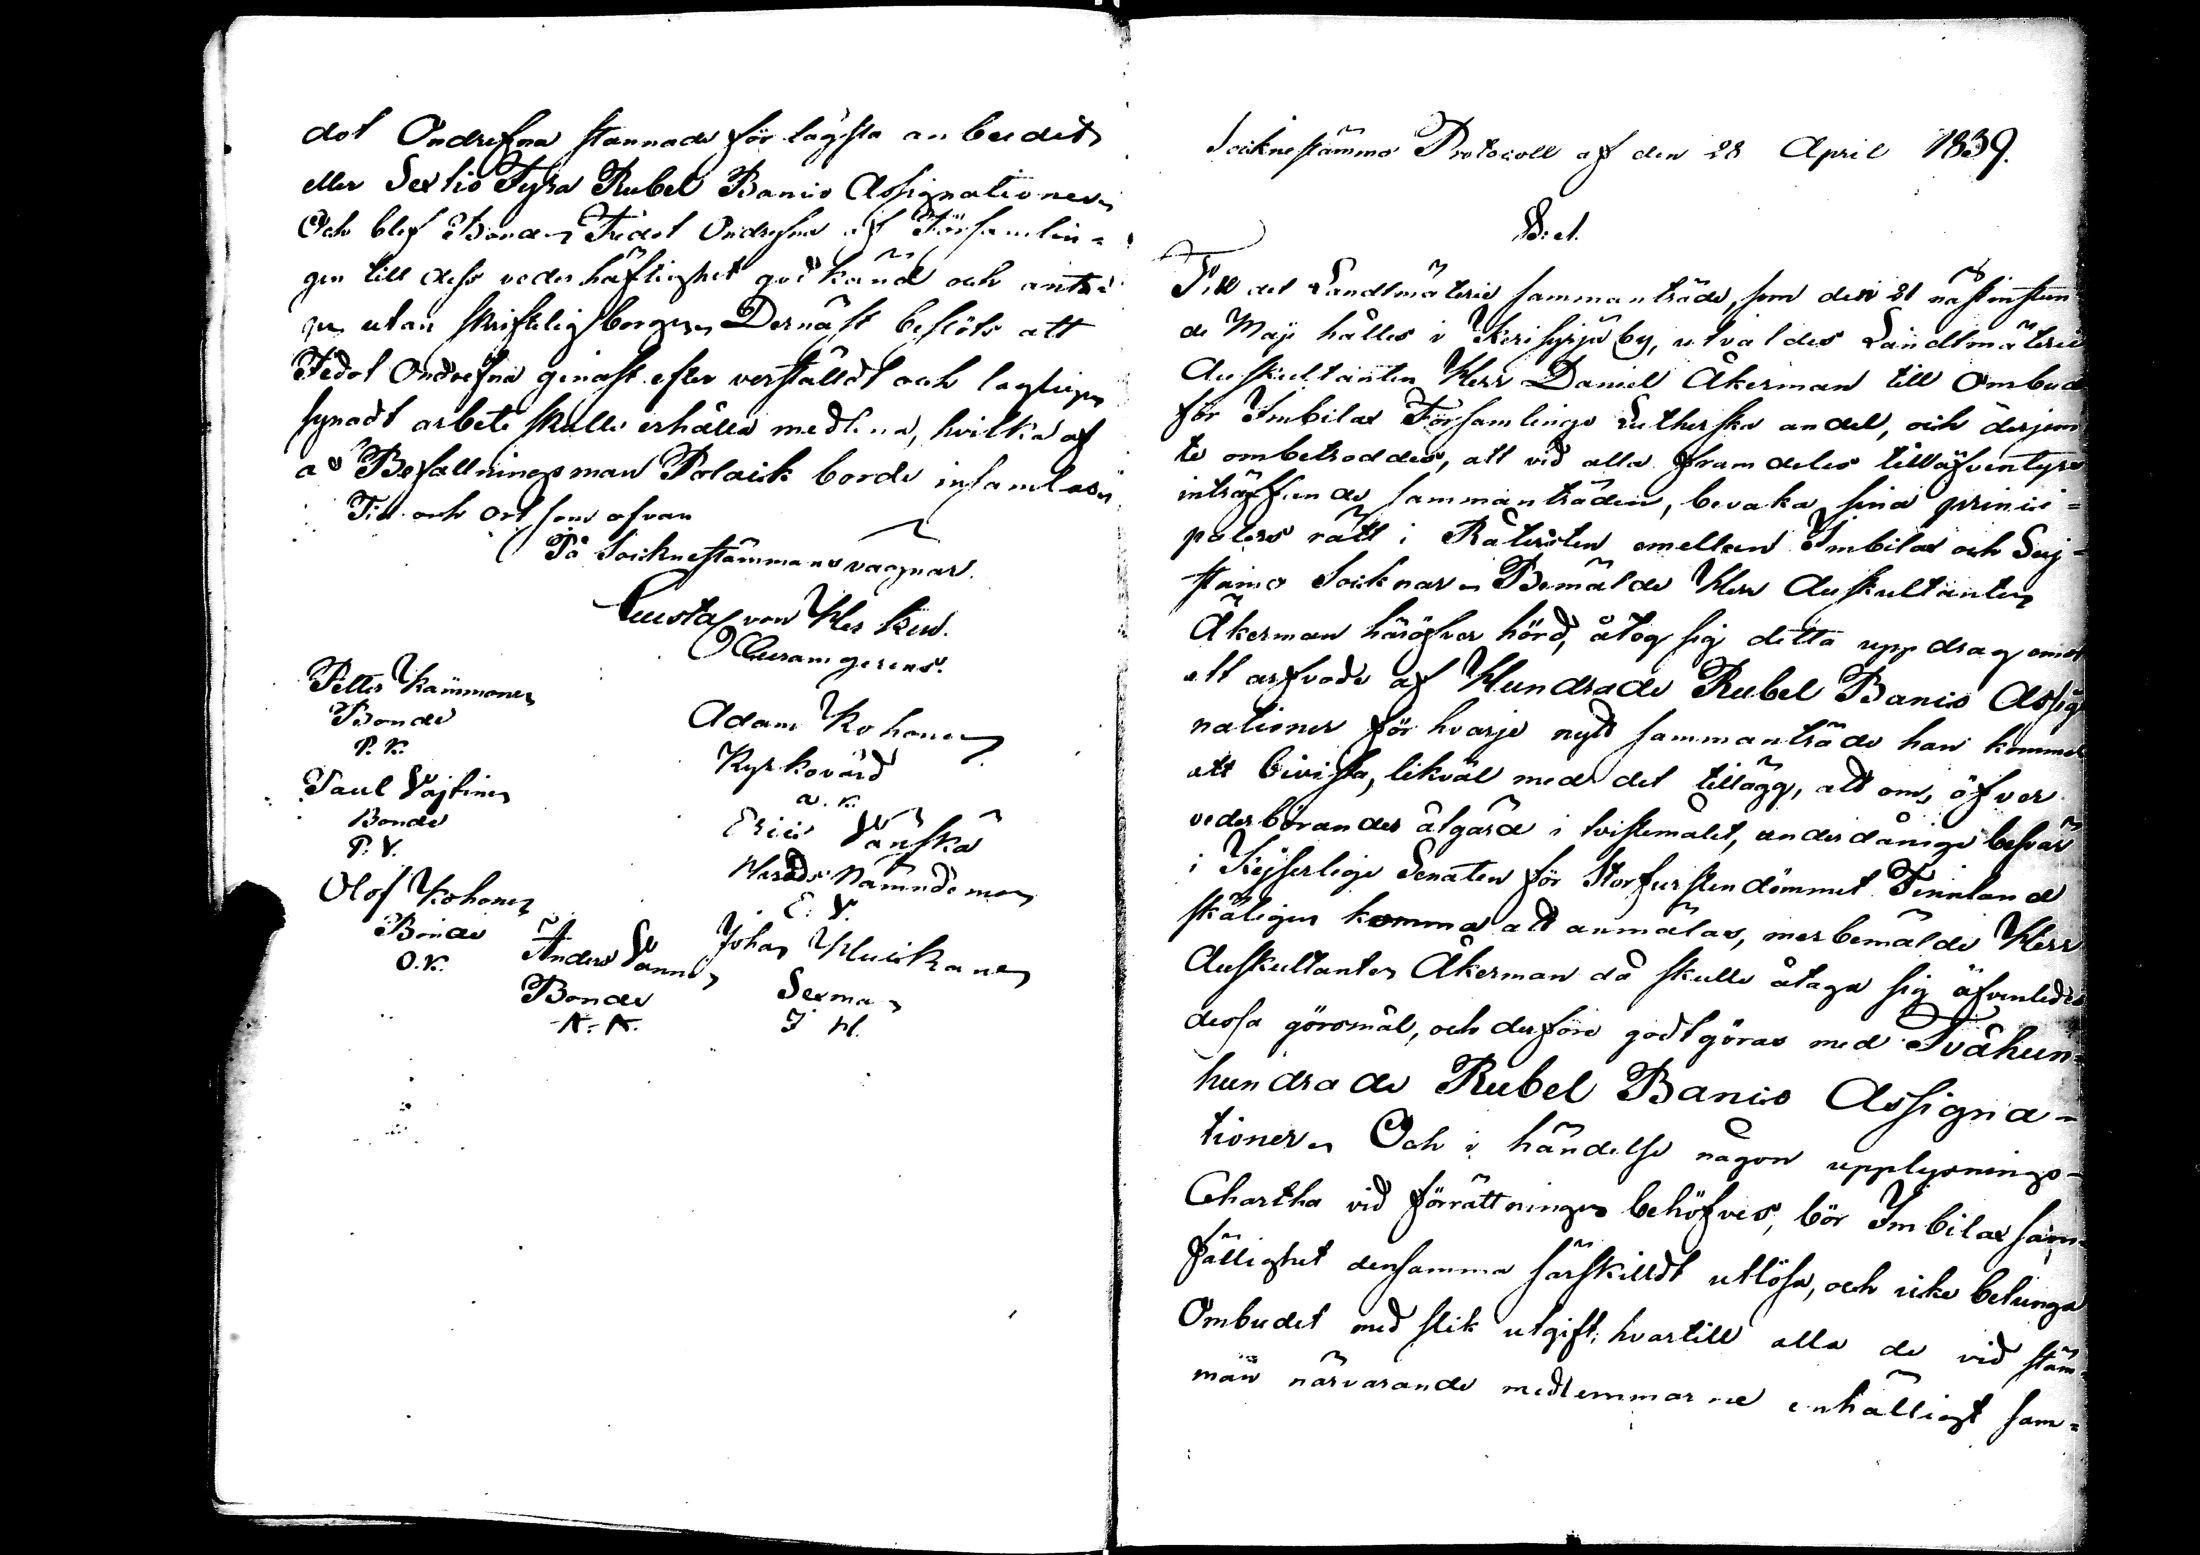 dot Ondrefna stannade för lägsta anbudet
eller Sextio Fyra Rubel Banco Assignationer
Och blef Bonden Fedot Ondrefna af Församlin=
gen till dess vederhäftighet godkänd och anta
gen utan skriftelig borgen Dernäst beslöts att
Fedot Ondrefna genast efter verstäldt och lagligen
synadt arbete skulle erhålla medlena, hvilka af
Befallningsman Polaick borde insamlas
Tid och Ort som ofvan
På Socknestämmans vägnar.
Gustaf von
Petter Kämmonen
Bonde
P. K.
Adam Kohonen
Kyrkovärd
a. K.
Paul Vajtinen
Bonde
P. V.
Eric Vänskä
Härads Nämndeman
E. V.
Olof Kohonen
Bonde
O. K.
Anders
Bonde
Johan Muikanen
Sexman
J M.
Socknestämmo Protocoll af den 28 April 1839.
S. 1.
Till det Landtmäterie sammanträde, som den 21 nästinstun
de Maji hålles i Kerisyrjä by, utvaldes Landtmäterie
Auskultanten Herr Daniel Åkerman till Ombud
för Imbilax Församlings Lutherska andel, och derjem
te ombetroddes, att vid alla framdeles tilläfventyrs
inträffande sammanträden, bevaka sina princi=
palers rätt i Råtvisten emellan Imbilax och Suj=
stamo Socknar. Bemälde Herr Auskultanten
Åkerman häröfver hörd, åtog sig detta uppdrag emot
ett arfvode af Hundrade Rubel Banco Assig
nationer för hvarje nytt sammanträde han kommer
att bivista, likväl med det tillägg, att om, öfver
vederbörandes åtgärd i tvistemålet, underdånige besvär
i Kejserlige Senaten för Storfurstendömmet Finnland
skäligen komma att anmälas, merbemälde Herr
Auskultanten Åkerman då skulle åtaga sig äfvenledes
dessa göromål, och derföre godtgöras med Tvåhun=
hundrade Rubel Banco Assigna=
tioner. Och i händelse någon upplysnings=
Chartha vid förrättningen behöfves, bör Imbilax säm=
fällighet densamma särskildt utlösa, och icke betunga
Ombudet med slik utgift; hvartill alla de vid stäm=
man närvarande medlemmarne enhälligt sam=